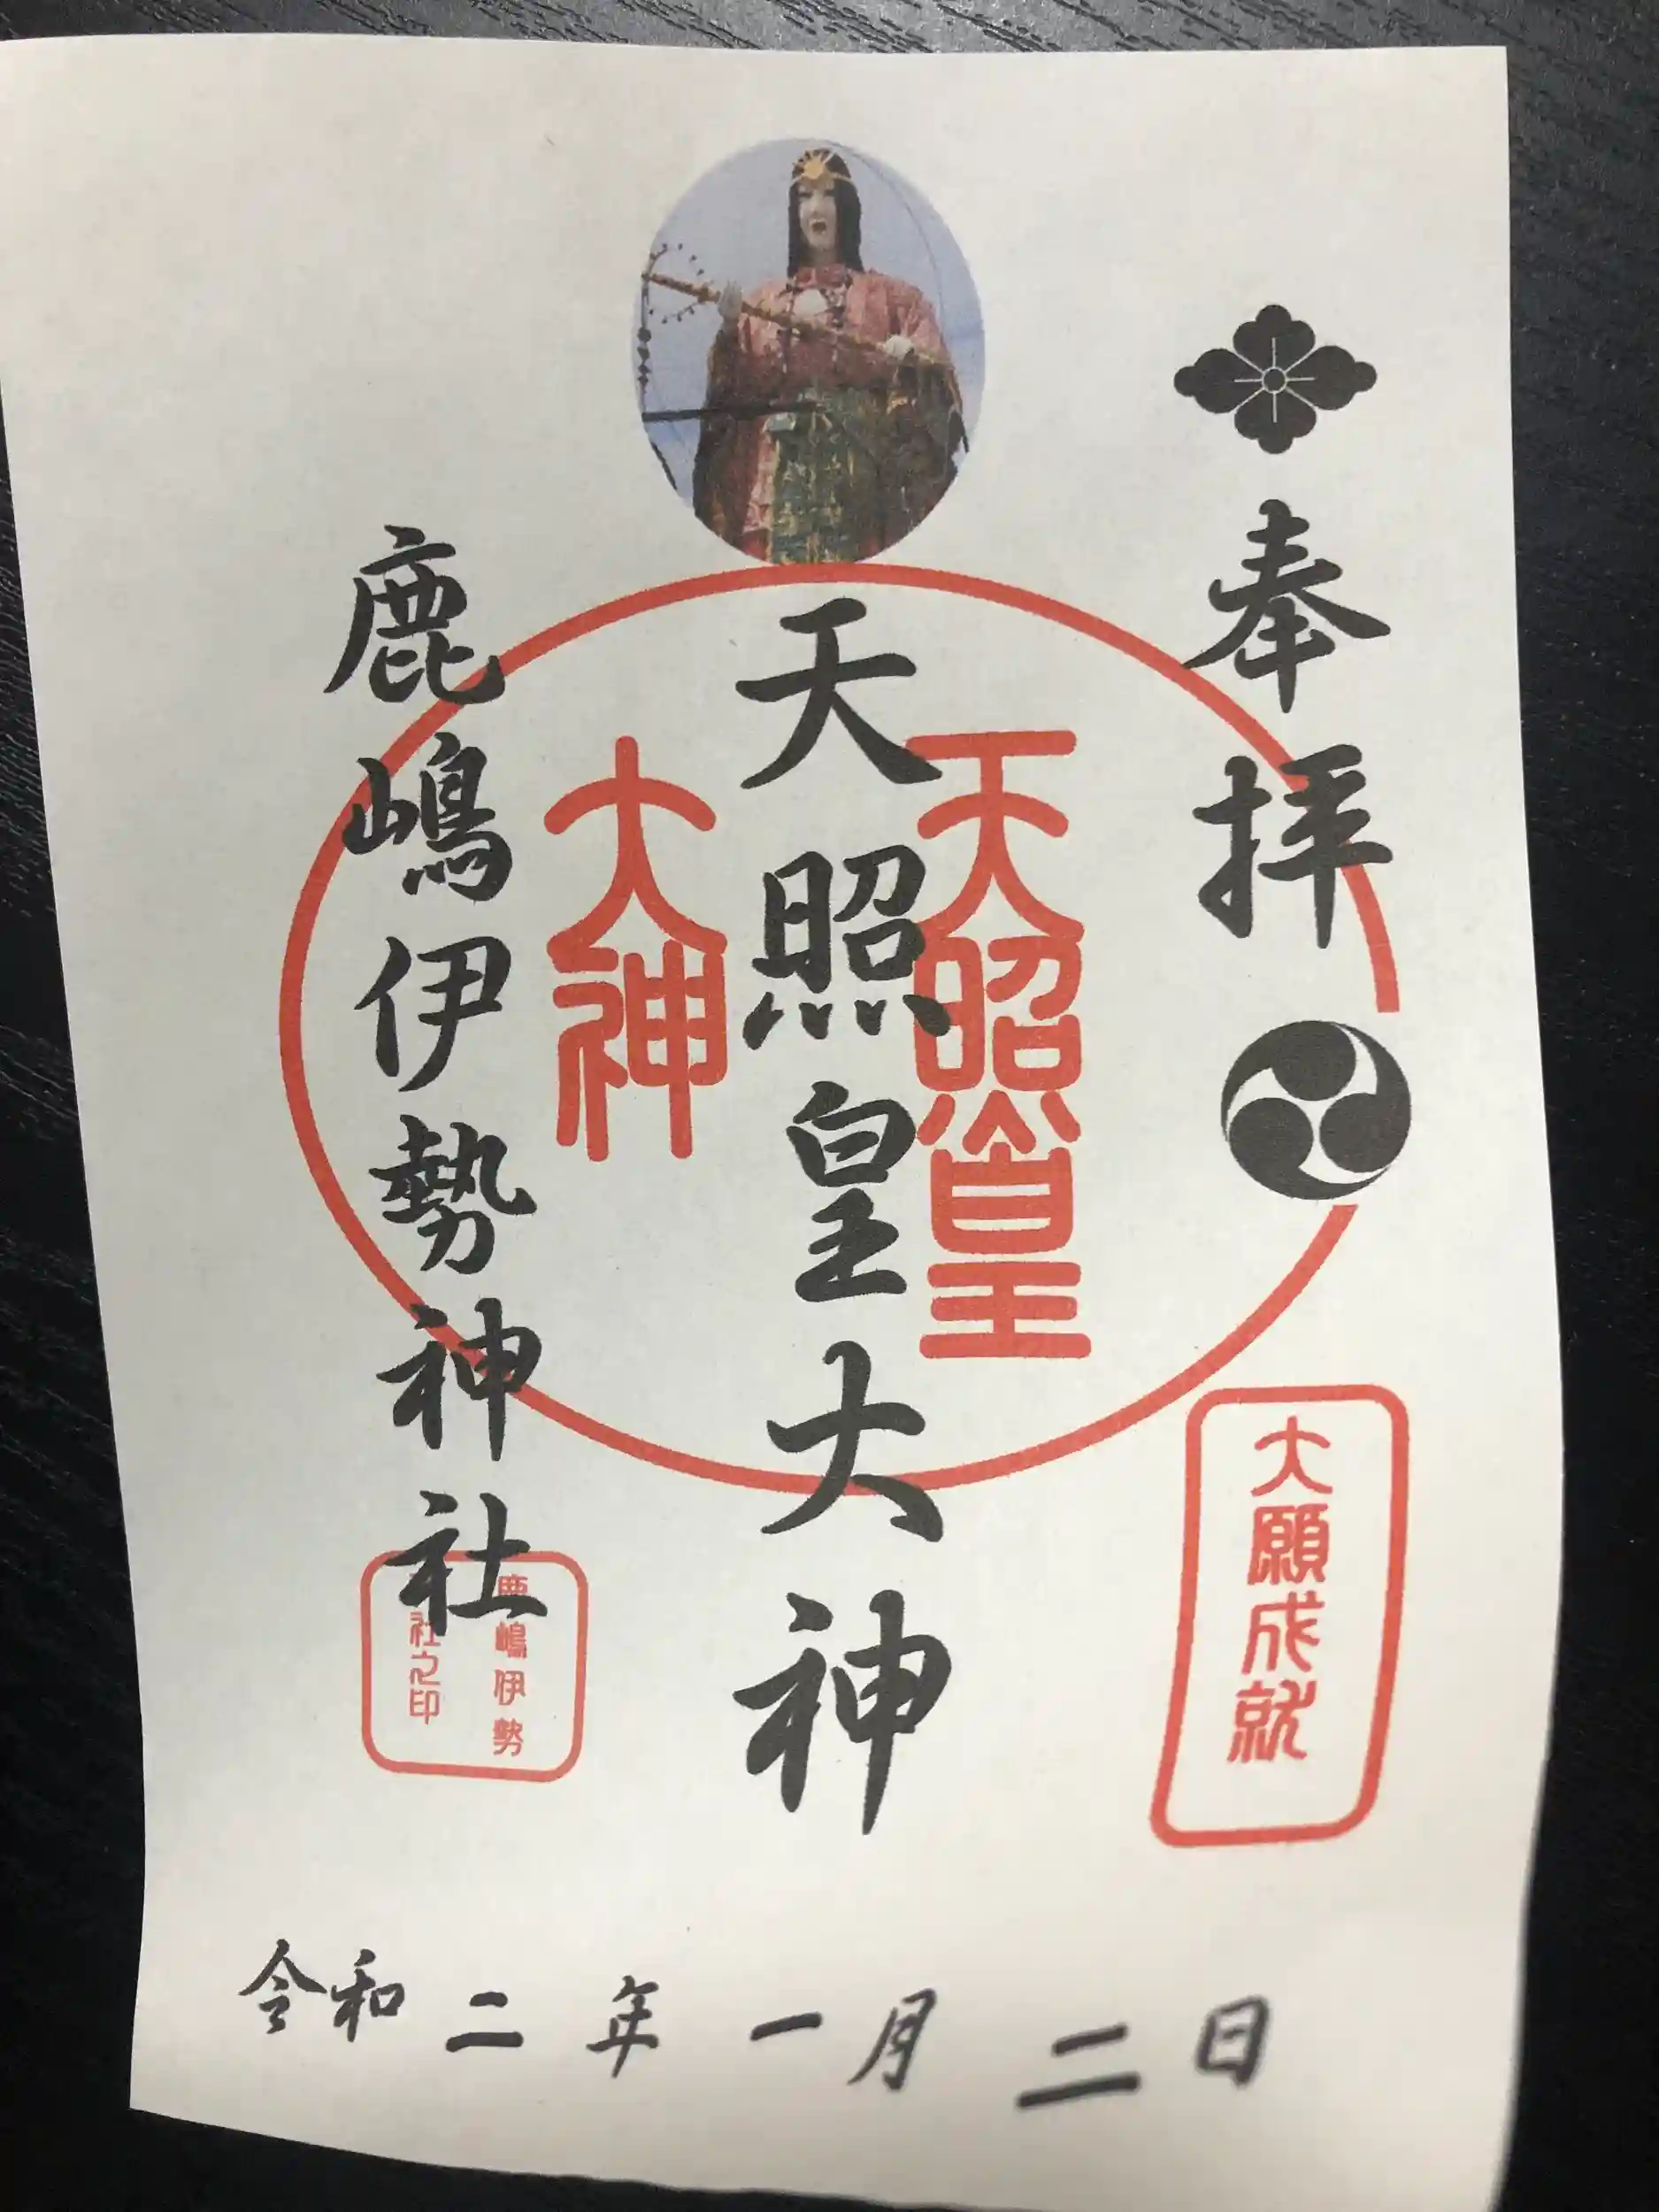 奉拝
大願成就
天照皇大神
天照皇
大神
鹿嶋伊勢神社
鹿嶋伊勢
社之印
令和二年一月二日